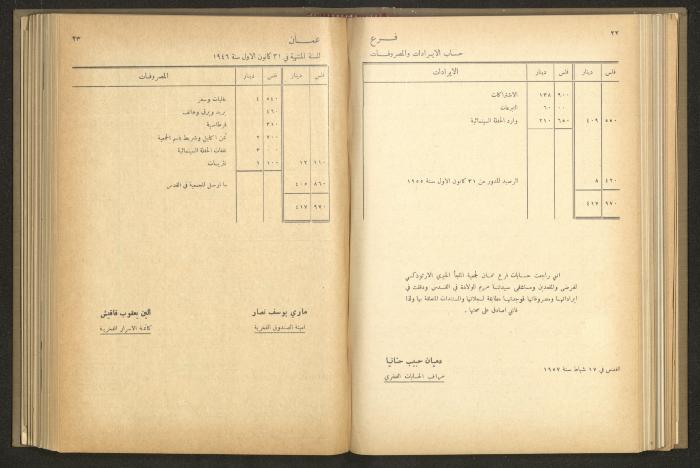 ٢٢
فرع
حساب الايرادات والمصروفات
فلس دينار فلس دينار الايرادات
٩٠٠ ١٣٨ الاشتراكات
٠٠ ٦٠ التبرعات
٥٥٠ ٤٠٩ ٦٥٠ ٢١٠ وارد الحفلة السينمائية
٤٢٠ ٨ الرصيد المدور من ٣١ كانون الاول سنة ١٩٥٥
٩٧٠ ٤١٧
اني راجعت حسابات فرع عمان لجمعية الملجأ الخيري الارثوذكسي
للمرضى والمقعدين ومستشفى سيدتنا مريم الولادة في القدس ودققت في
ايراداتها ومصروفاتها فوجدتها مطابقة لسجلاتها والمستندات المتعلقة بها ولذا
فانني اصادق على صحتها .
القدس في ١٧ شباط سنة ١٩٥٧
حبيب حنانيا
الحسابات الفخري
٢٣
عمان
للسنة المنتهية في ٣١ كانون الاول سنة ١٩٤٦
فلس دينار فلس دينار المصروفات
٥٤٠ ٤ وسفر
٤٦٠ بريد وبرق وهاتف
٣١٠ قرطاسية
٧٠٠ ٢ ثمن اكاليل وشريط باسم الجمعية
٣ نفقات الحفلة السينمائية
١١٠ ١٢ ١٠٠ ١ نثريات
٨٦٠ ٤٠٥ ما ارسل للجمعية في القدس
٩٧٠ ٤١٧
ماري يوسف نصار
امينة الصندوق الفخرية
الين يعقوب قاقيش
كاتمة الاسرار الفخرية